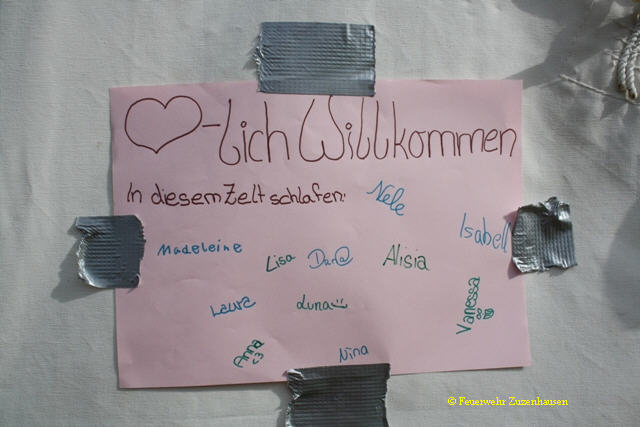 ♡-lich Willkommen
In diesem Zelt schlafen:
Nele
Isabell
Madeleine
Lisa
Alisia
Laura
Luna
Vanessa
Anna <3
Nina
© Feuerwehr Zuzenhausen